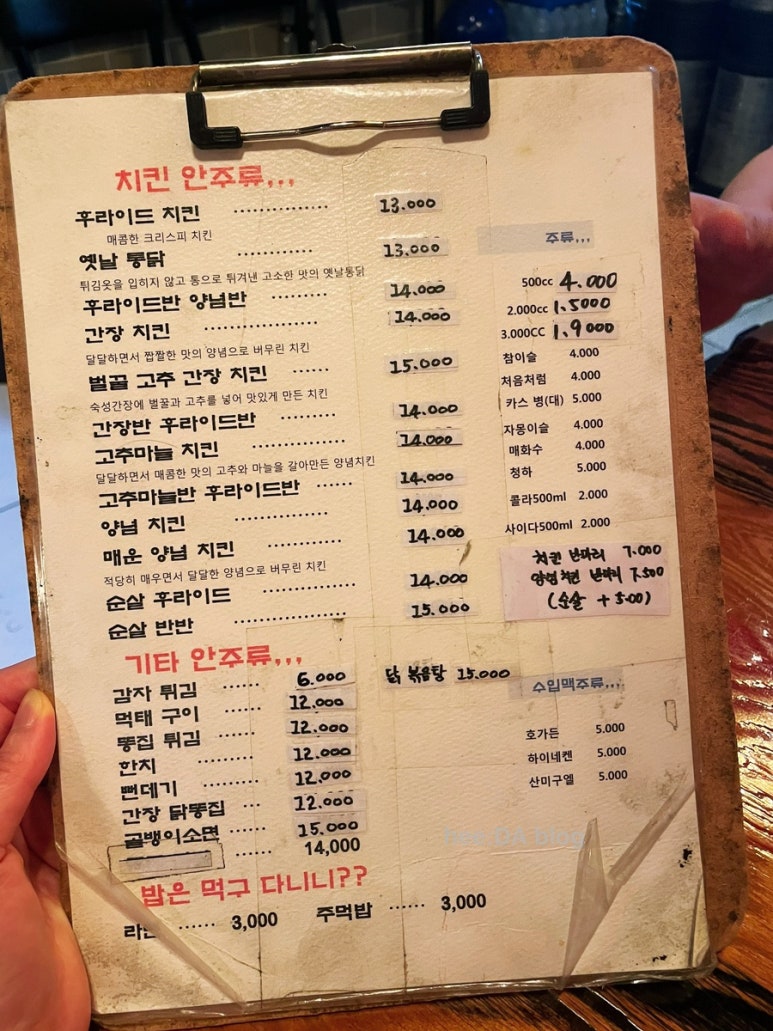 치킨 안주류,,,
후라이드 치킨 ················ 13.000
매콤한 크리스피 치킨
옛날 통닭 ············· 13.000
튀김옷을 입히지 않고 통으로 튀겨낸 고소한 맛의 옛날통닭
후라이드반 양념반 ·········· 14.000
간장 치킨 ··················· 14.000
달달하면서 짭짤한 맛의 양념으로 버무린 치킨
벌꿀 고추 간장 치킨 ······ 15.000
숙성간장에 벌꿀과 고추를 넣어 맛있게 만든 치킨
간장반 후라이드반 ········· 14.000
고추마늘 치킨 ··············· 14.000
달달하면서 매콤한 맛의 고추와 마늘을 갈아만든 양념치킨
고추마늘반 후라이드반 ······ 14.000
양념 치킨 ················ 14.000
매운 양념 치킨 ············ 14.000
적당히 매우면서 달달한 양념으로 버무린 치킨
순살 후라이드 ············· 14.000
순살 반반 ··················· 15.000
주류,,,
500cc 4.000
2.000cc 1.5000
3.000CC 1.9000
참이슬 4.000
처음처럼 4.000
카스 병(대) 5.000
자몽이슬 4.000
매화수 4.000
청하 5.000
콜라500ml 2.000
사이다500ml 2.000
치킨 반마리 7.000
양념치킨 반마리 7.500
(순살 + 500)
기타 안주류,,,
감자 튀김 ······ 6.000
먹태 구이 ······ 12.000
똥집 튀김 ······ 12.000
한치 ········· 12.000
뻔데기 ········· 12.000
간장 닭똥집 ··· 12.000
골뱅이소면 ······ 15.000
······ 14,000
닭 볶음탕 15.000
수입맥주류,,,
호가든 5.000
하이네켄 5.000
산미구엘 5.000
밥은 먹구 다니니??
······ 3,000 주먹밥 ······ 3,000